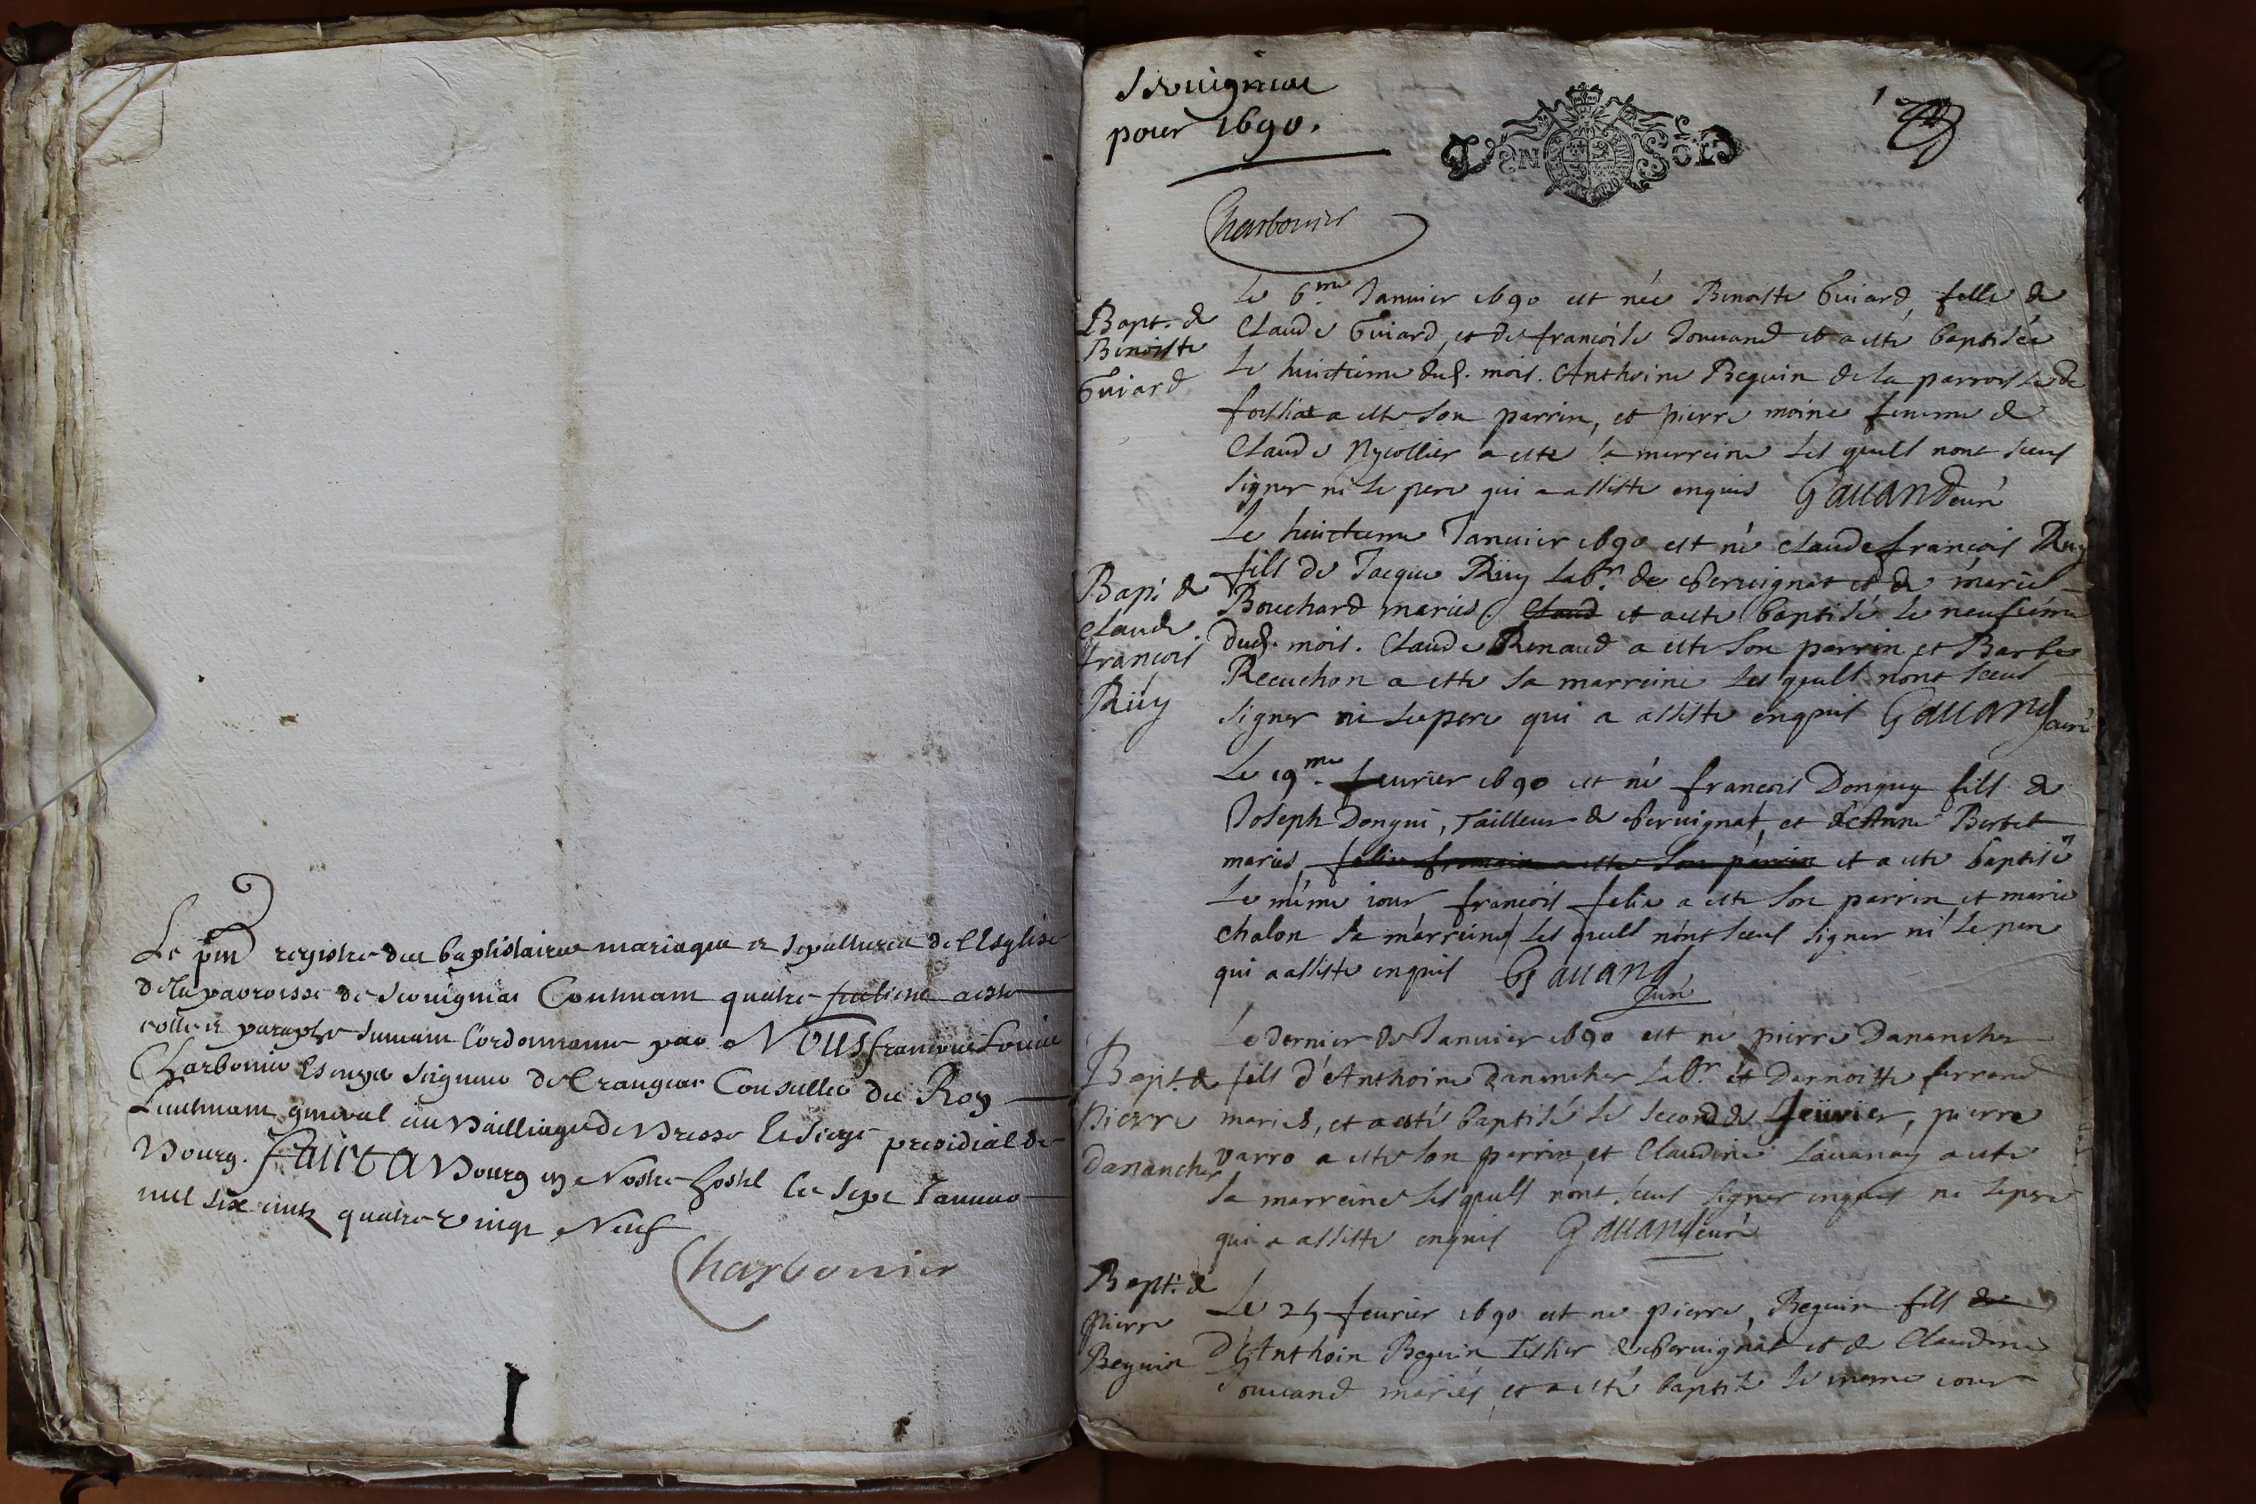 Le pnt registre des baptistaires mariages et sepultures de l'Esglise
de la parroisse de Servignat Contenant quatre feulietz a esté
cotté et paraphé suivant l'ordonnance par Nous francois Louis
Charbonier Escuyer seigneur de Crangeac Conseiller du Roy
Lieutenant general au Bailliage de Bresse et siege presidial de
Bourg. Faict a Bourg en Nostre hostel le sept Janvier
mil six cents quatre vingt Neuf
Charbonier
Servignat
pour 1690.
1
EN SOL
Charbonier
Bapt. de
Benoiste
Guiard
Le 6.me Janvier 1690 est née Benoiste Guiard fille de
Claude Guiard, et de francoise Jouvand et a esté baptisée
Le huictieme dud. mois. Anthoine Beguin de la parroisse de
foissiat a este son parrin, et pierre moine femme de
Claude Nycollier a este sa marreine Les quels nont sceus
signer ni le pere qui a assiste enquis Gavand curé
Bapt. de
Claude
francois
Rüy
Le huictieme Janvier 1690 est né claude francois Ruy
fils de Jacque Rüy Labr. de chervignat et de marie
Bouchard mariés. Claud et a este baptisé le neufieme
dud. mois. Claude Renaud a este son parrin et Barbe
Recuchon a este sa marreine Les quels nont sceus
signer ni le pere qui a assiste enquis Gavand curé
Le 19.me fevrier 1690 est né francois Donguy fils de
Joseph Dongui, Tailleur de chervignat, et de Anne Berbet
mariés, felix a este son parrin et a este baptisé
Le méme iour francois felix a este son parrin et marie
chalon sa marreine Les quels nont sceus signer ni le pere
qui a assiste enquis Gavand
curé
Bapt. de
Pierre
Dananche
Le dernier de Janvier 1690 est né pierre Dananche
fils d'Anthoine Dananche Labr. et Dernoiste ferrand
mariés, et a esté baptisé le second de fevrier, pierre
varro a este son parrin, et Claudine Lavanay a este
sa marreine Les quels nont sceus signer enquis ni le pere
qui a assiste enquis Gavand curé
Bapt. de
Pierre
Beguin
Le 25 fevrier 1690 est ne pierre Beguin fils de
d'Anthoin Beguin Tissier de chervignat et de Claudine
Jouvand mariés, et a esté baptisé le meme iour